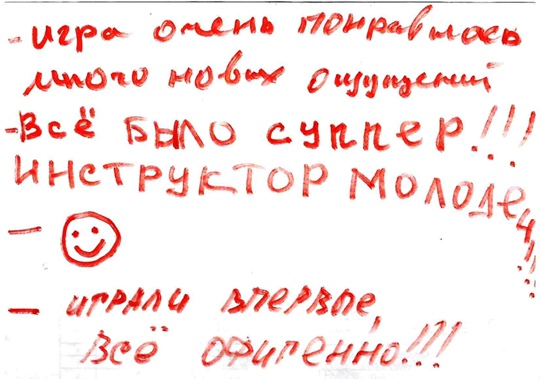 - игра очень понравилось
много новых ощущений
- Всё БЫЛО суппер!!!
ИНСТРУКТОР МОЛОДЕЦ!!!
—
— ИГРАЛИ ВПЕРВЫЕ,
ВСЁ ОФИГЕННО!!!